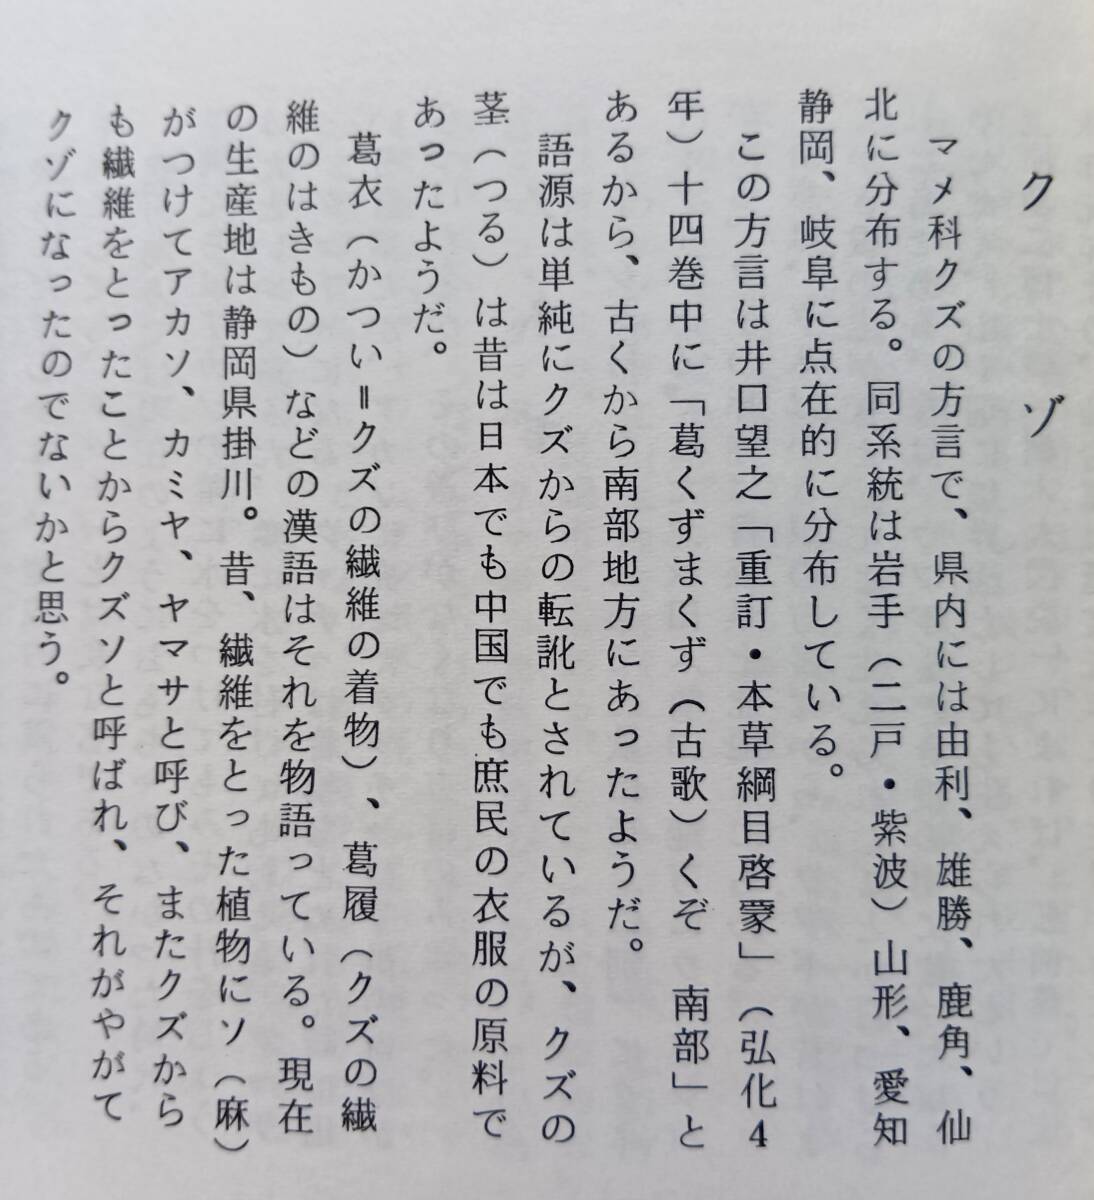 クゾ
マメ科クズの方言で、県内には由利、雄勝、鹿角、仙
北に分布する。同系統は岩手（二戸・紫波）山形、愛知
静岡、岐阜に点在的に分布している。
この方言は井口望之「重訂・本草綱目啓蒙」（弘化4
年）十四巻中に「葛くずまくず（古歌）くぞ　南部」と
あるから、古くから南部地方にあったようだ。
語源は単純にクズからの転訛とされているが、クズの
茎（つる）は昔は日本でも中国でも庶民の衣服の原料で
あったようだ。
葛衣（かつい＝クズの繊維の着物）、葛履（クズの繊
維のはきもの）などの漢語はそれを物語っている。現在
の生産地は静岡県掛川。昔、繊維をとった植物にソ（麻）
がつけてアカソ、カミヤ、ヤマサと呼び、またクズから
も繊維をとったことからクズソと呼ばれ、それがやがて
クゾになったのでないかと思う。